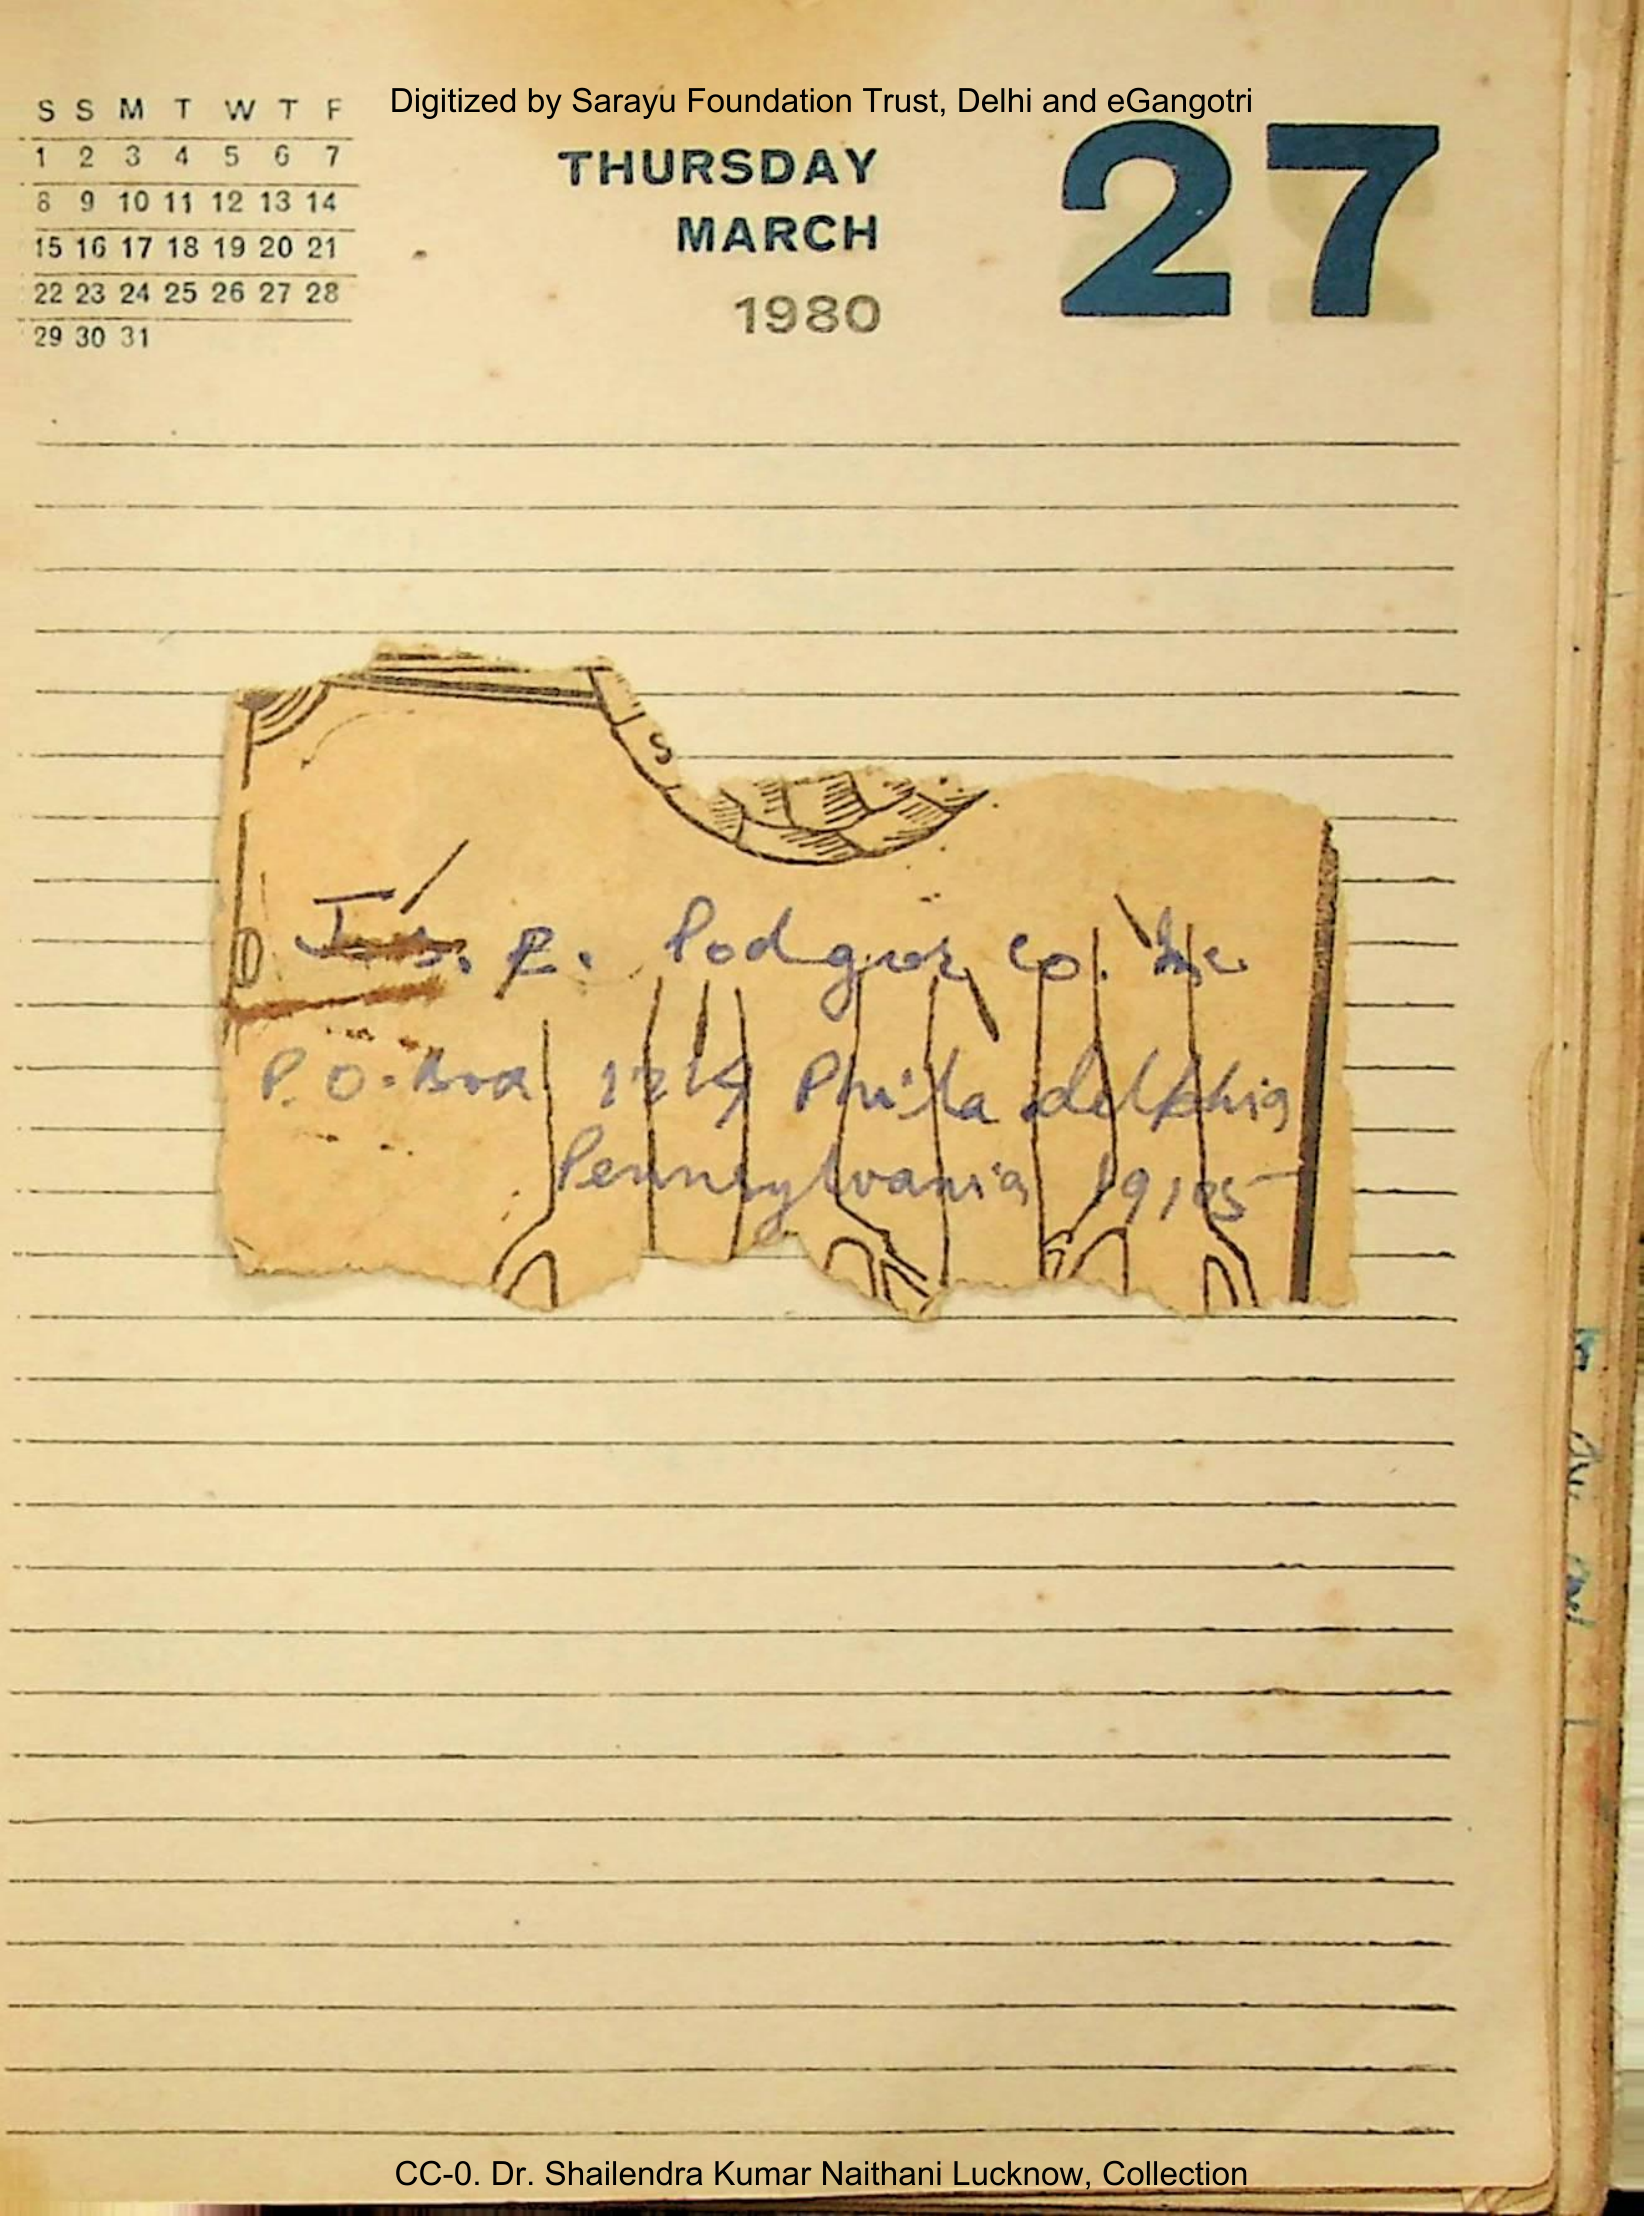 Digitized by Sarayu Foundation Trust, Delhi and eGangotri
S S M T W T F
1 2 3 4 5 6 7
8 9 10 11 12 13 14
15 16 17 18 19 20 21
22 23 24 25 26 27 28
29 30 31
THURSDAY
MARCH
1980
27
E. Podgor Co. Inc
P.O. Box Philadelphia
Pennsylvania 19105
CC-0. Dr. Shailendra Kumar Naithani Lucknow, Collection